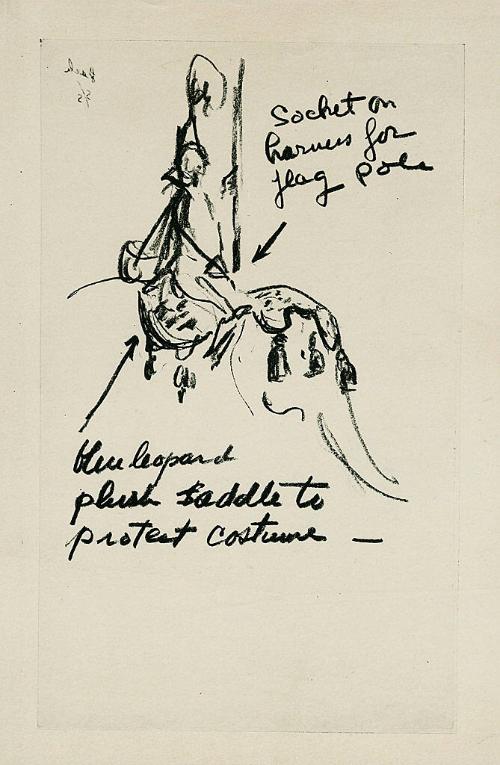 Socket on
harness for
flag pole
blue leopard
plush saddle to
protect costume —